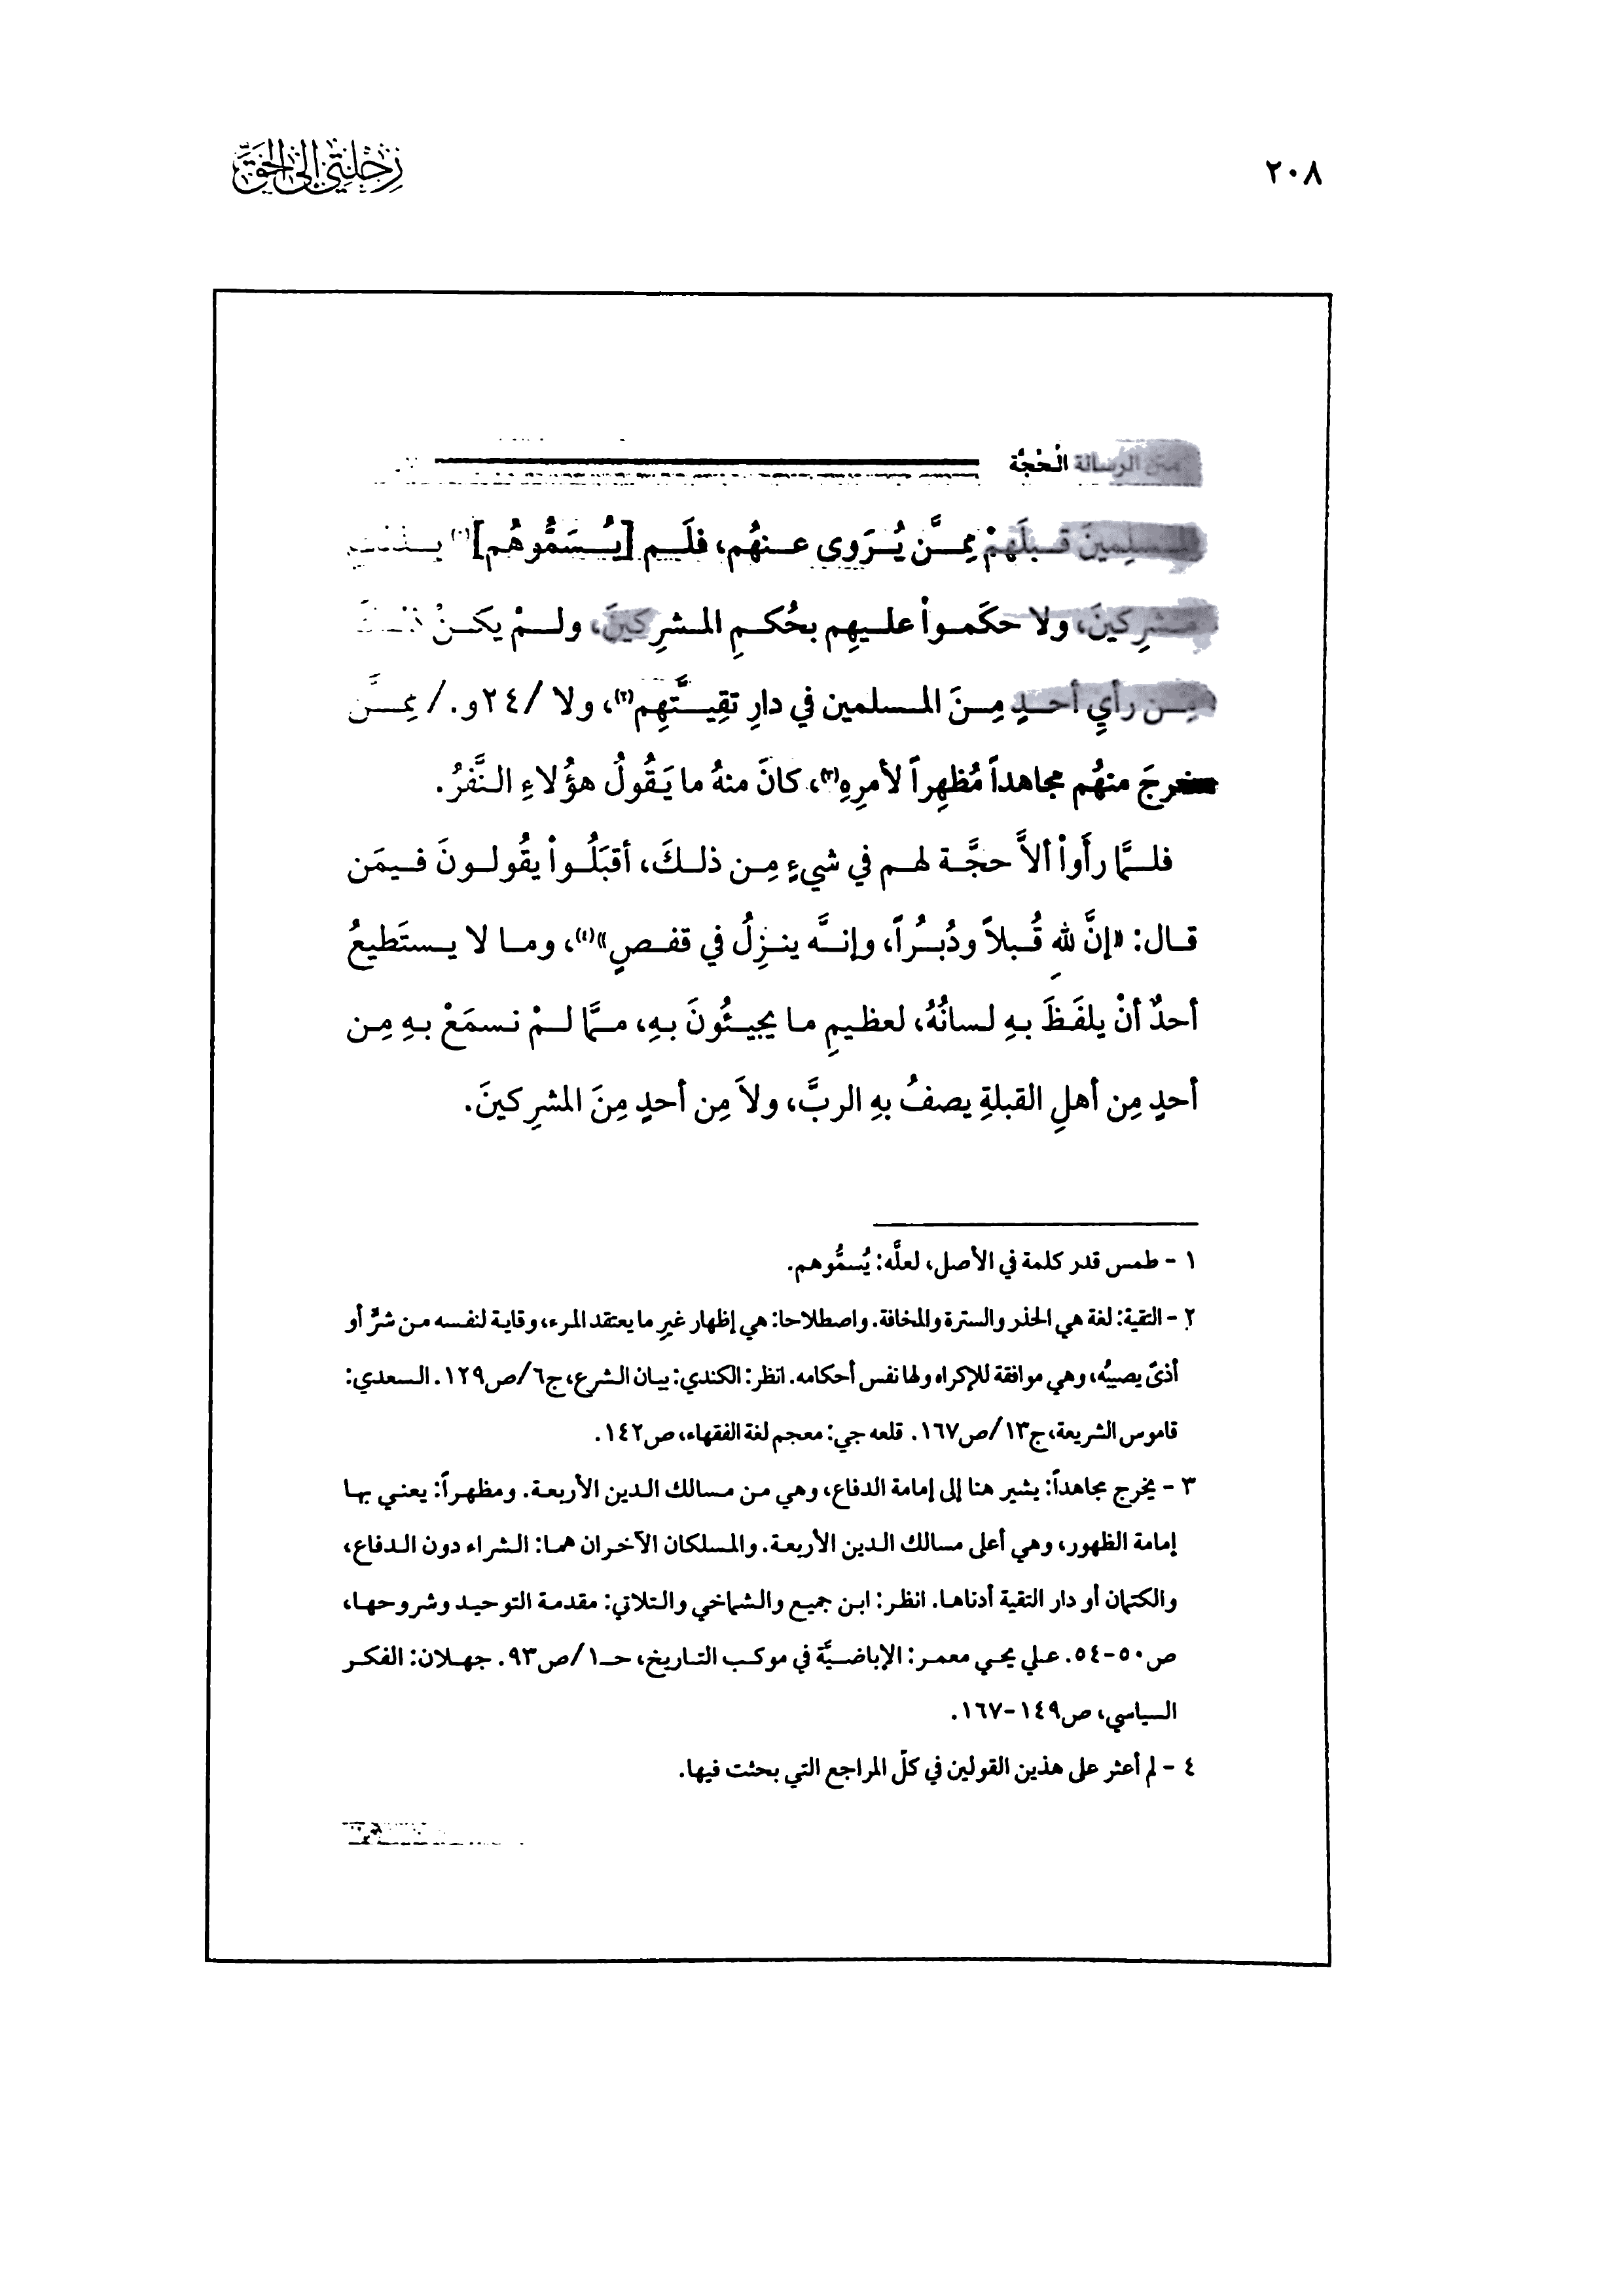 ٢٠٨
رِحْلَتِي إِلَى الْحَقِّ
متن الرسالة الْحُجَّة
المسلِمينَ قبلَهمْ مِمَّن يُرَوى عنهُم، فلَم [يُسَمُّوهُم](١)
مشرِكينَ، ولا حكَمواْ عليهِم بحُكمِ المشرِكينَ، ولمْ يكنْ
مِن رأيِ أحدٍ مِنَ المسلمين في دارِ تقِيَّتهِم(٢)، ولا /٢٤و./ مِمَّن
خرجَ منهُم مجاهداً مُظهِراً لأمرِهِ(٣)، كانَ منهُ ما يَقُولُ هؤُلاءِ النَّفرُ.
فلمَّا رأَواْ ألاَّ حجَّة لهم في شيءٍ مِن ذلكَ، أقبَلُواْ يقُولونَ فيمَن
قال: «إنَّ للهِ قُبلاً ودُبُراً، وإنَّه ينزِلُ في قفصٍ»(٤)، وما لا يستَطيعُ
أحدٌ أنْ يلفَظَ بهِ لسانُهُ، لعظيمِ ما يجيئُونَ بهِ، ممَّا لمْ نسمَعْ بهِ مِن
أحدٍ مِن أهلِ القبلةِ يصفُ بهِ الربَّ، ولاَ مِن أحدٍ مِنَ المشرِكينَ.
١ - طمس قدر كلمة في الأصل، لعلَّه: يُسمُّوهم.
٢ - التقية: لغة هي الحذر والسترة والمخافة. واصطلاحا: هي إظهار غيرِ ما يعتقد المرء، وقاية لنفسه من شرٍّ أو
أذىً يصيبُه، وهي موافقة للإكراه ولها نفس أحكامه. انظر: الكندي: بيان الشرع، ج٦/ص١٢٩. السعدي:
قاموس الشريعة، ج١٣/ص١٦٧. قلعه جي: معجم لغة الفقهاء، ص١٤٢.
٣ - يخرج مجاهداً: يشير هنا إلى إمامة الدفاع، وهي من مسالك الدين الأربعة. ومظهراً: يعني بها
إمامة الظهور، وهي أعلى مسالك الدين الأربعة. والمسلكان الآخران هما: الشراء دون الدفاع،
والكتمان أو دار التقية أدناها. انظر: ابن جميع والشماخي والتلاتي: مقدمة التوحيد وشروحها،
ص٥٠-٥٤. علي يحي معمر: الإباضيَّة في موكب التاريخ، حـ١/ص٩٣. جهلان: الفكر
السياسي، ص١٤٩-١٦٧.
٤ - لم أعثر على هذين القولين في كلّ المراجع التي بحثت فيها.